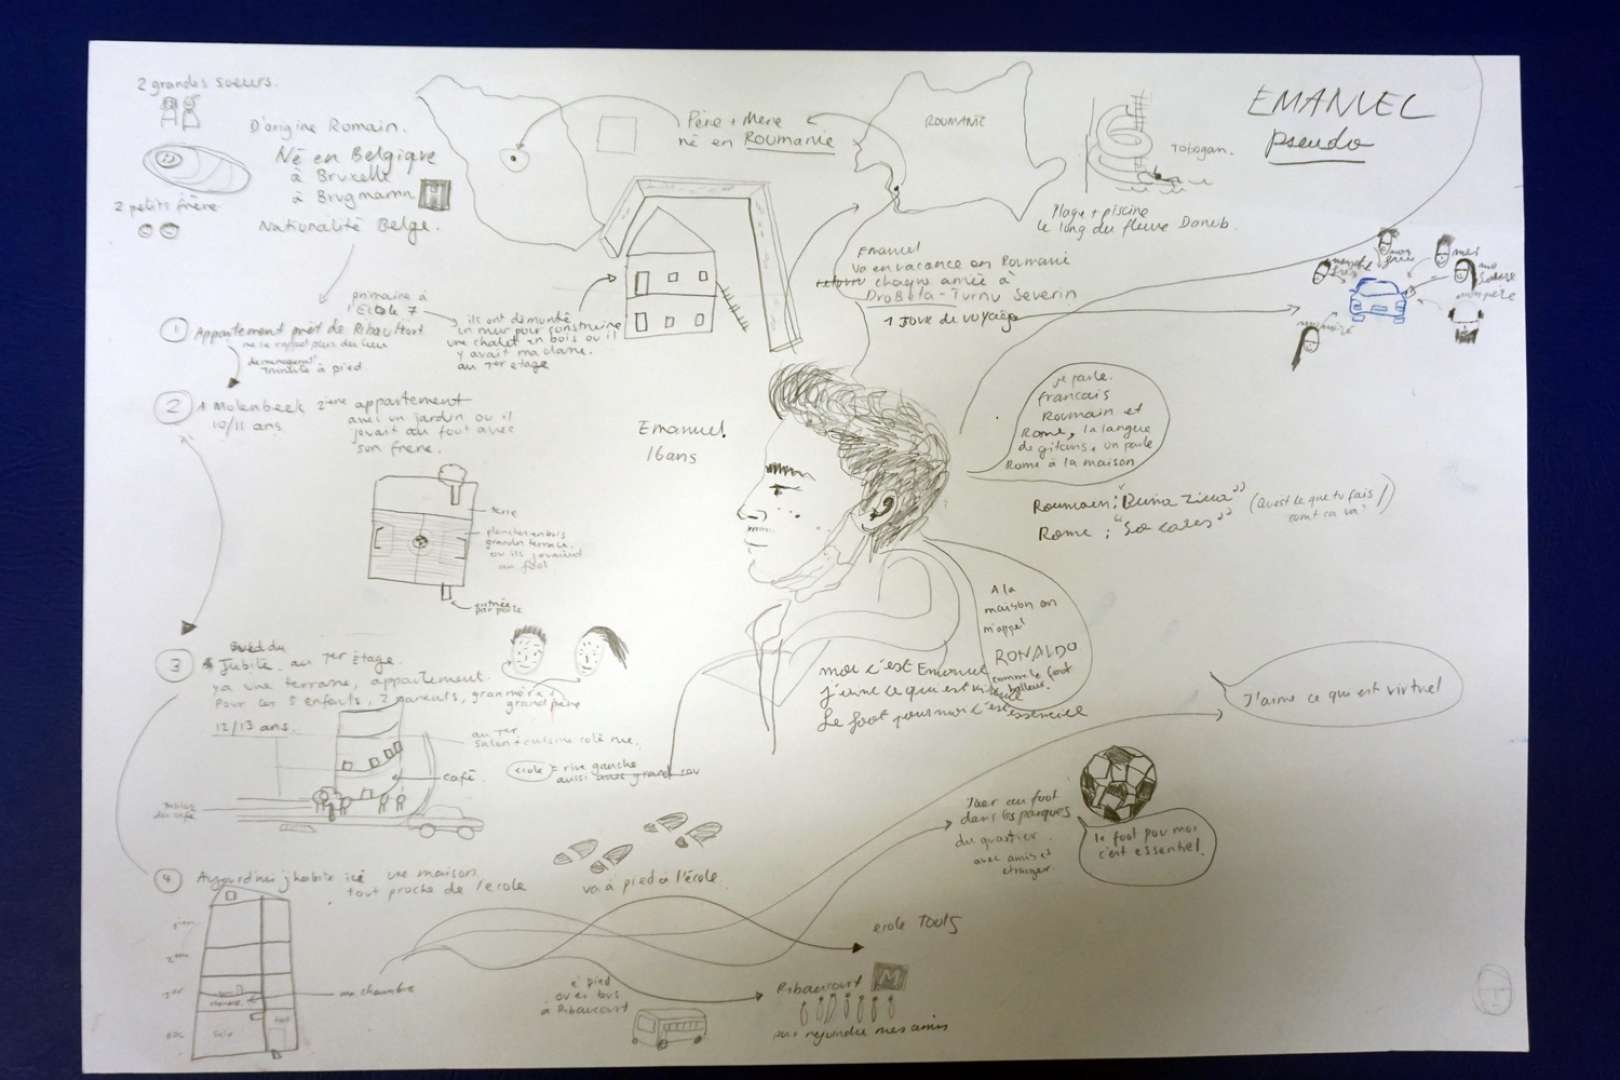 2 grandes soeurs.
D'origine Romain.
Né en Belgique
à Bruxelle
à Brugmann
2 petits frère
Nationalité Belge.
Père + Mère
né en ROUMANIE
ROUMANIE
Tobogan.
Plage + piscine
le long du fleuve Danub.
EMANUEL
pseudo
Emanuel
va en vacance en Roumanie
chaque année à
DroBeta-Turnu Severin
1 Jour de voyage
mon père
primaire à
l'Ecole 7
ils ont demandé
un mur pour construire
une chalet en bois ou il
y avait ma classe.
au 1er etage
1 Appartement prêt de Ribaucourt
à pied
2 à Molenbeek 2ième appartement
10/11 ans
avec un jardin ou il
jouait au foot avec
son frère.
terre
plancher en bois
grande terrasse
ou ils jouaient
au foot
entrée
par porte
Emanuel
16 ans
je parle.
francais
Roumain et
Rome, la langue
de gitans, on parle
Rome à la maison
Roumain: "Buna Ziua"
Rome : "So cares"
(Quest ce que tu fais /
comt ca va?)
A la
maison on
m'appel
RONALDO
comme le foot
balleur.
moi c'est Emanuel
j'aime ce qui est
Le foot pour moi c'est essenciel
3
Jubilé au 1er Etage.
ya une terrasse, appartement.
pour les 5 enfants, 2 parents, granmère +
grand père
12/13 ans.
au 1er
salon + cuisine coté rue.
café
ecole = rive gauche
aussi avec grand cou
tables
du café
J'aime ce qui est virtuel
Jouer au foot
dans les parques
du quartier
avec amis et
etranger.
le foot pour moi
c'est essentiel.
va à pied à l'école.
4 Aujourd'hui j'habite ici une maison
tout proche de l'école
2ème
1er
ma chambre
ecole TOUTS
à pied
ou en bus
à Ribaucourt
Ribaucourt M
pour rejoindre mes amis